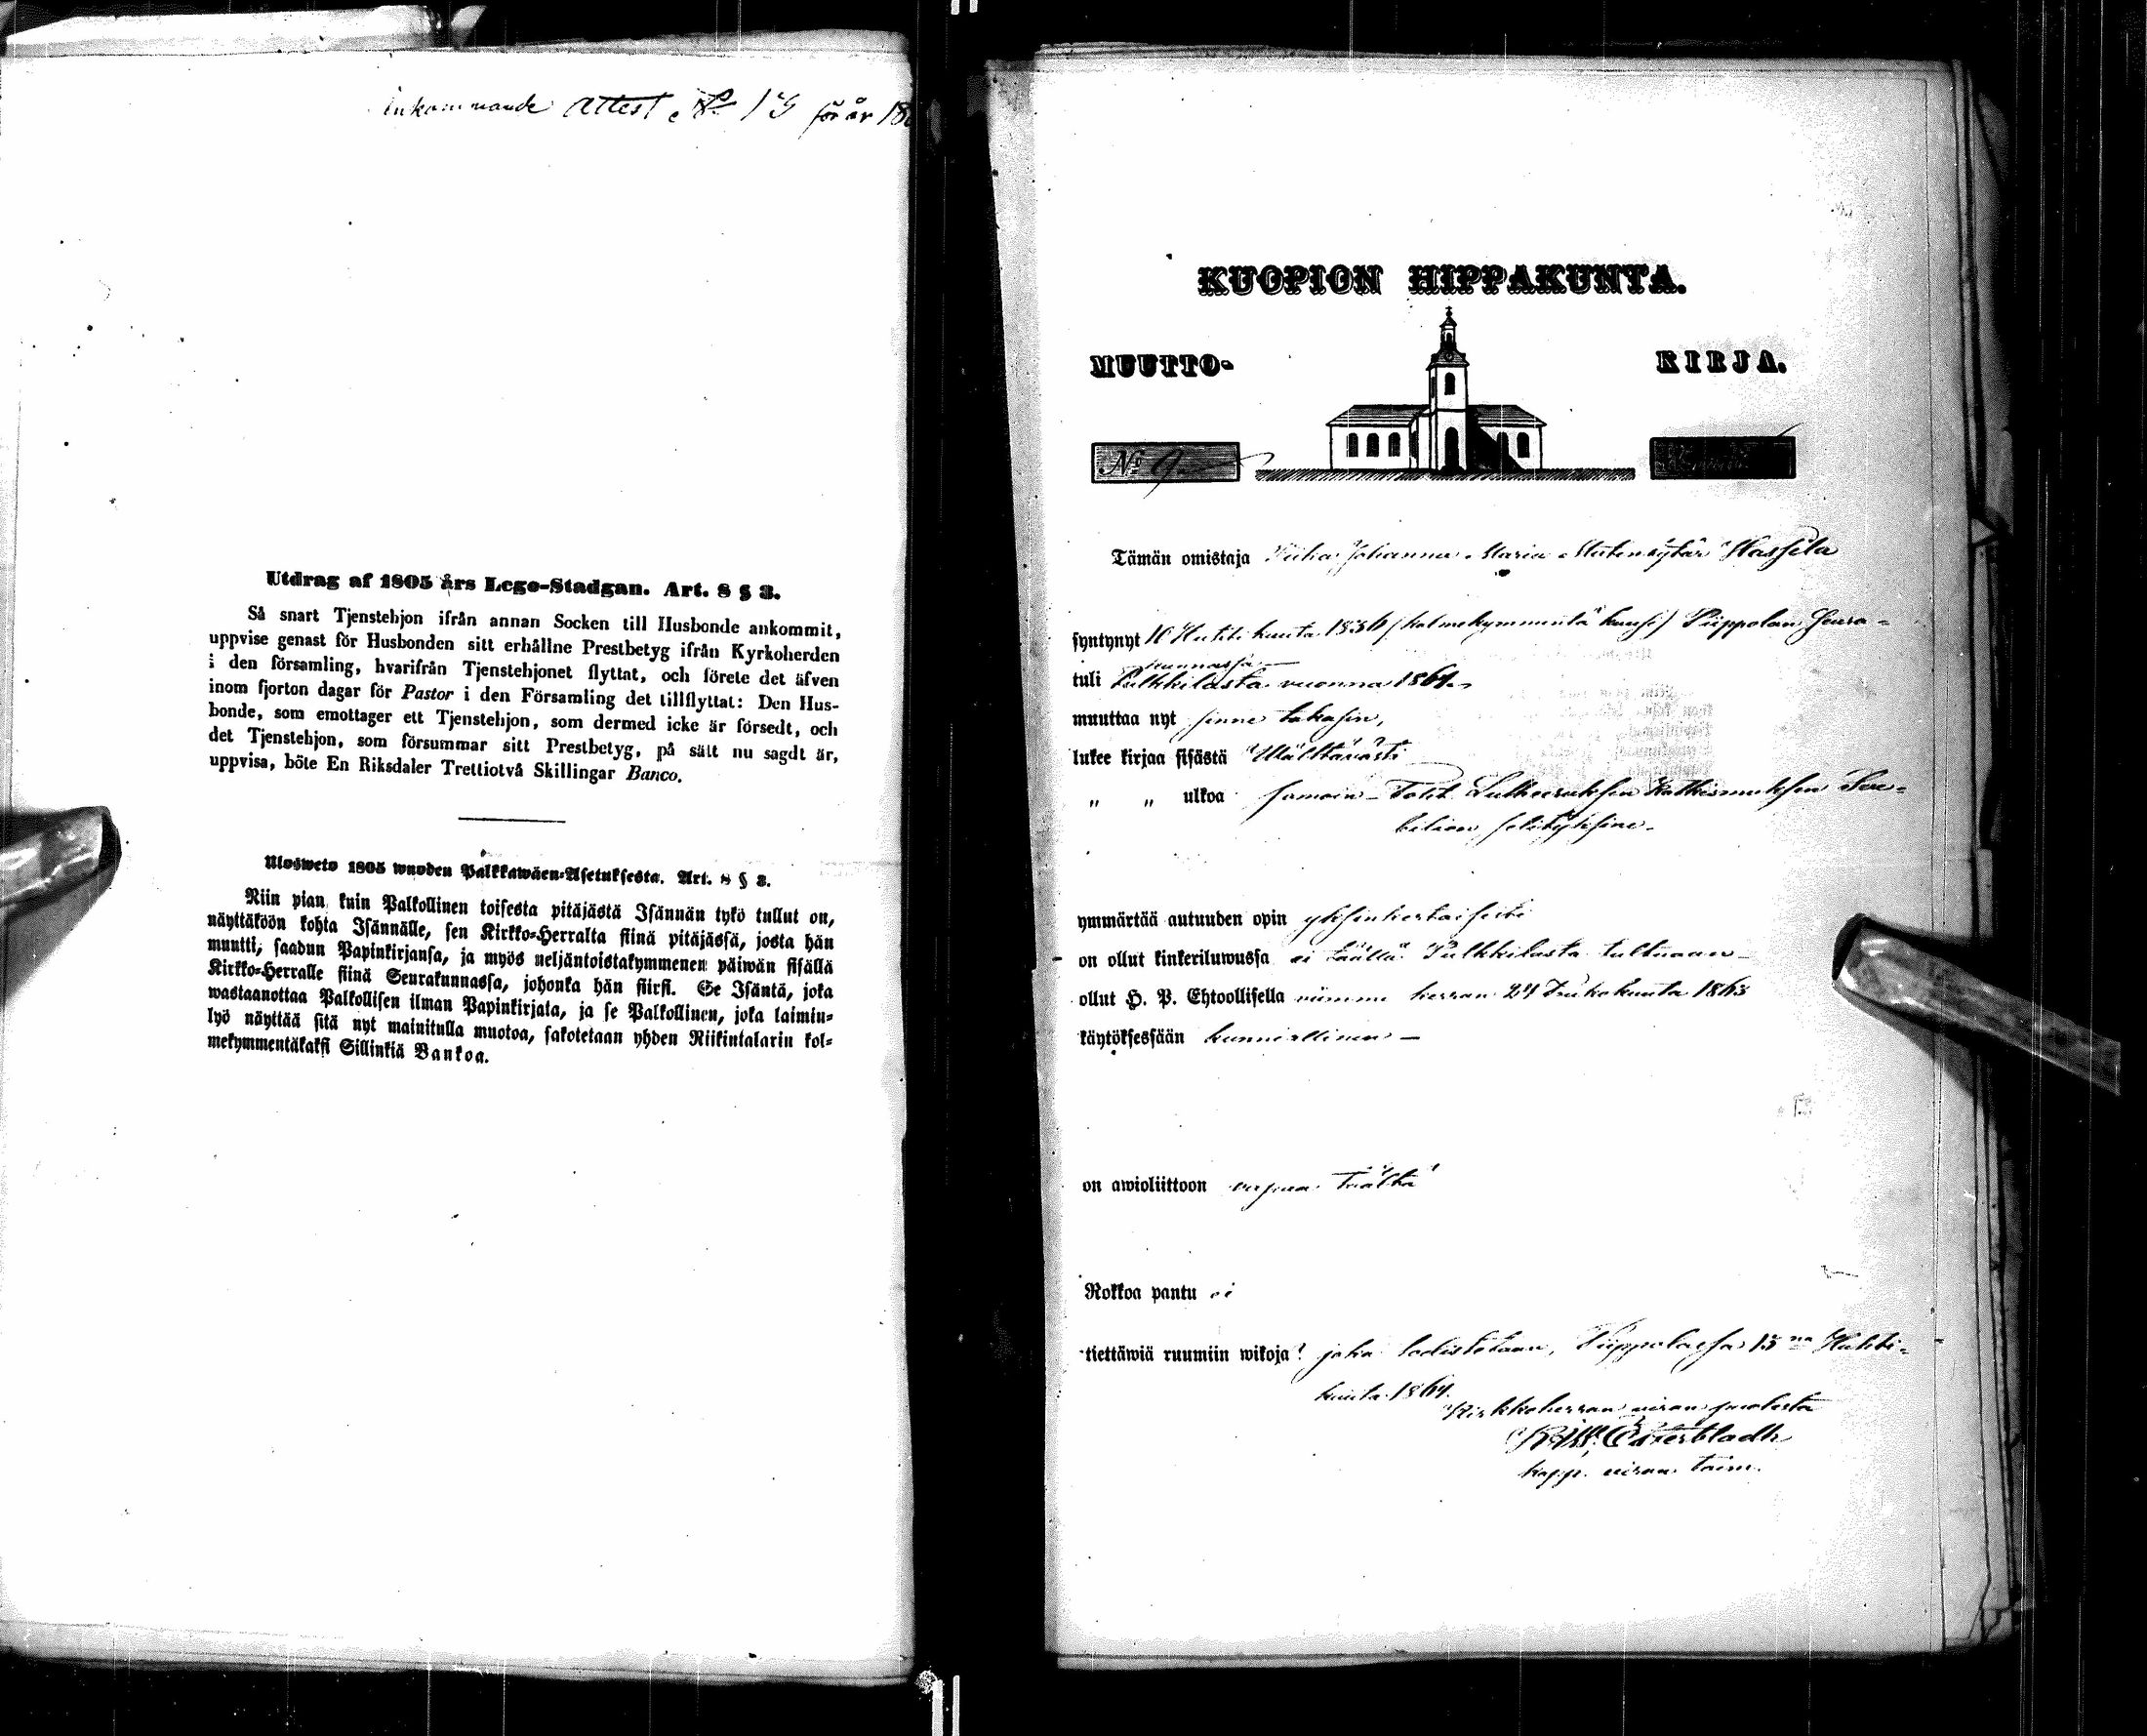 Inkommande Attest No 15 för år 18
Utdrag af 1805 års Lego-Stadgan. Art. 8 § 3.
Så snart Tjenstehjon ifrån annan Socken till Husbonde ankommit,
uppvise genast för Husbonden sitt erhållne Prestbetyg ifrån Kyrkoherden
i den församling, hvarifrån Tjenstehjonet flyttat, och förete det äfven
inom fjorton dagar för Pastor i den Församling det tillflyttat: Den Hus-
bonde, som emottager ett Tjenstehjon, som dermed icke är försedt, och
det Tjenstehjon, som försummar sitt Prestbetyg, på sätt nu sagdt är,
uppvisa, böte En Riksdaler Trettiotvå Skillingar Banco.
Ulosweto 1805 wuoden Palkkawäen-Asetuksesta. Art. 8 § 3.
Niin pian kuin Palkollinen toisesta pitäjästä Isännän tykö tullut on,
näyttäköön kohta Isännälle, sen Kirkko-Herralta siinä pitäjässä, josta hän
muutti, saadun Papinkirjansa, ja myös neljäntoistakymmenen päiwän sisällä
Kirkko-Herralle siinä Seurakunnassa, johonka hän siirsi. Se Isäntä, joka
wastaanottaa Palkollisen ilman Papinkirjata, ja se Palkollinen, joka laimin-
lyö näyttää sitä nyt mainitulla muotoa, sakotetaan yhden Riikintalarin kol-
mekymmentäkaksi Sillinkiä Bankoa.
KUOPION HIPPAKUNTA.
MUUTTO- KIRJA.
No 9
Tämän omistaja Piika Johanna Maria Matintytär Hassila
syntynyt 10 Huhtikuuta 1836 (kolmekymmentä kuusi) Piippolan Seura-
kunnassa
tuli Pulkkilasta vuonna 1861
muuttaa nyt sinne takasin,
lukee kirjaa sisästä Wälttävästi
„ „ ulkoa samoin Lutheruksen Katkismuksen
selityksine.
ymmärtää autuuden opin yksinkertaisesti
on ollut kinkeriluwussa ei täällä Pulkkilasta tultuaan
ollut H. P. Ehtoollisella viimme kerran 24 Toukokuuta 1863
käytöksessään kunniallinen
on awioliittoon vapaa täältä
Rokkoa pantu ei
tiettäwiä ruumiin wikoja? joka todistetaan, Piippolassa 15na Huhti-
kuuta 1864.
Kirkkoherran viran puolesta
Österbladh
kapp. viran toim.